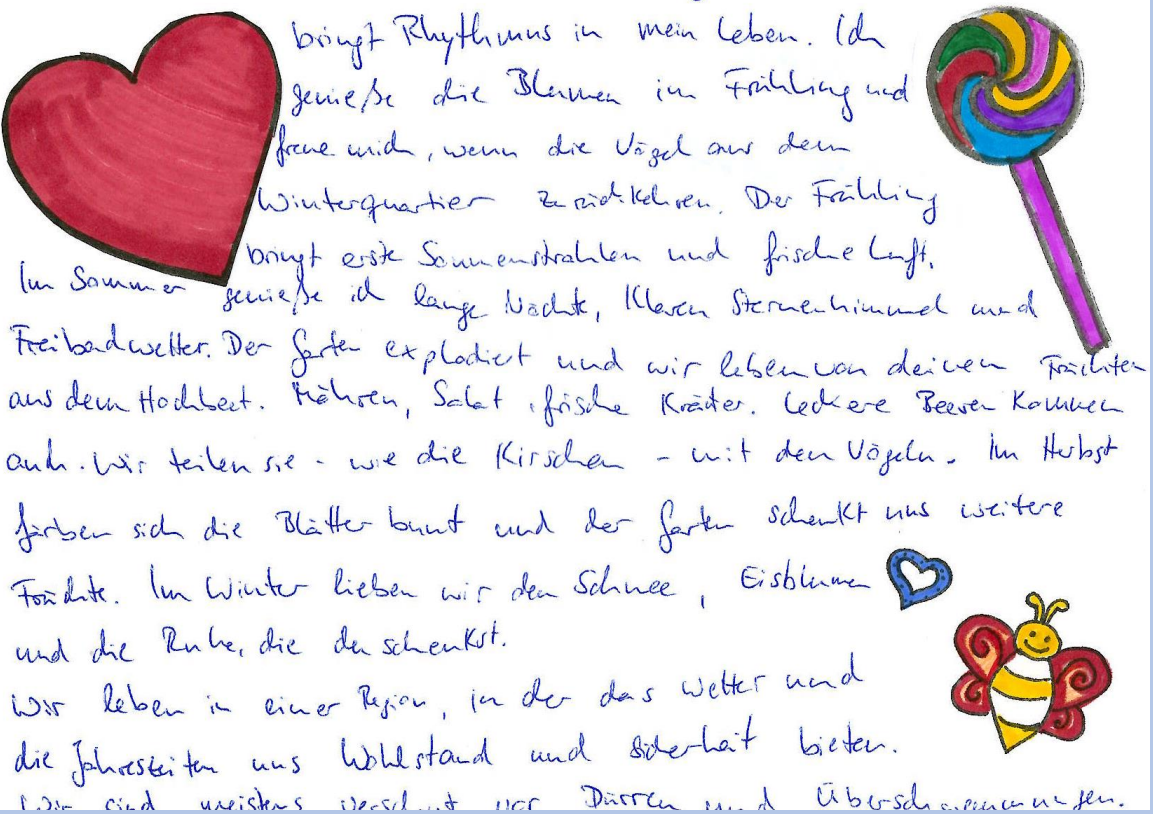 bringt Rhythmus in mein Leben. Ich
genieße die Blumen im Frühling und
freue mich, wenn die Vögel aus dem
Winterquartier zurückkehren. Der Frühling
bringt erste Sonnenstrahlen und frische Luft.
Im Sommer genieße ich lange Nächte, klaren Sternenhimmel und
Freibadwetter. Der Garten explodiert und wir leben von deinen Früchten
aus dem Hochbeet. Möhren, Salat, frische Kräuter. Leckere Beeren kommen
auch. Wir teilen sie - wie die Kirschen - mit den Vögeln. Im Herbst
färben sich die Blätter bunt und der Garten schenkt uns weitere
Früchte. Im Winter lieben wir den Schnee, Eisblumen
und die Ruhe, die du schenkst.
Wir leben in einer Region, in der das Wetter und
die Jahreszeiten uns Wohlstand und Sicherheit bieten.
Wir sind meistens verschont vor Dürren und Überschwemmungen.